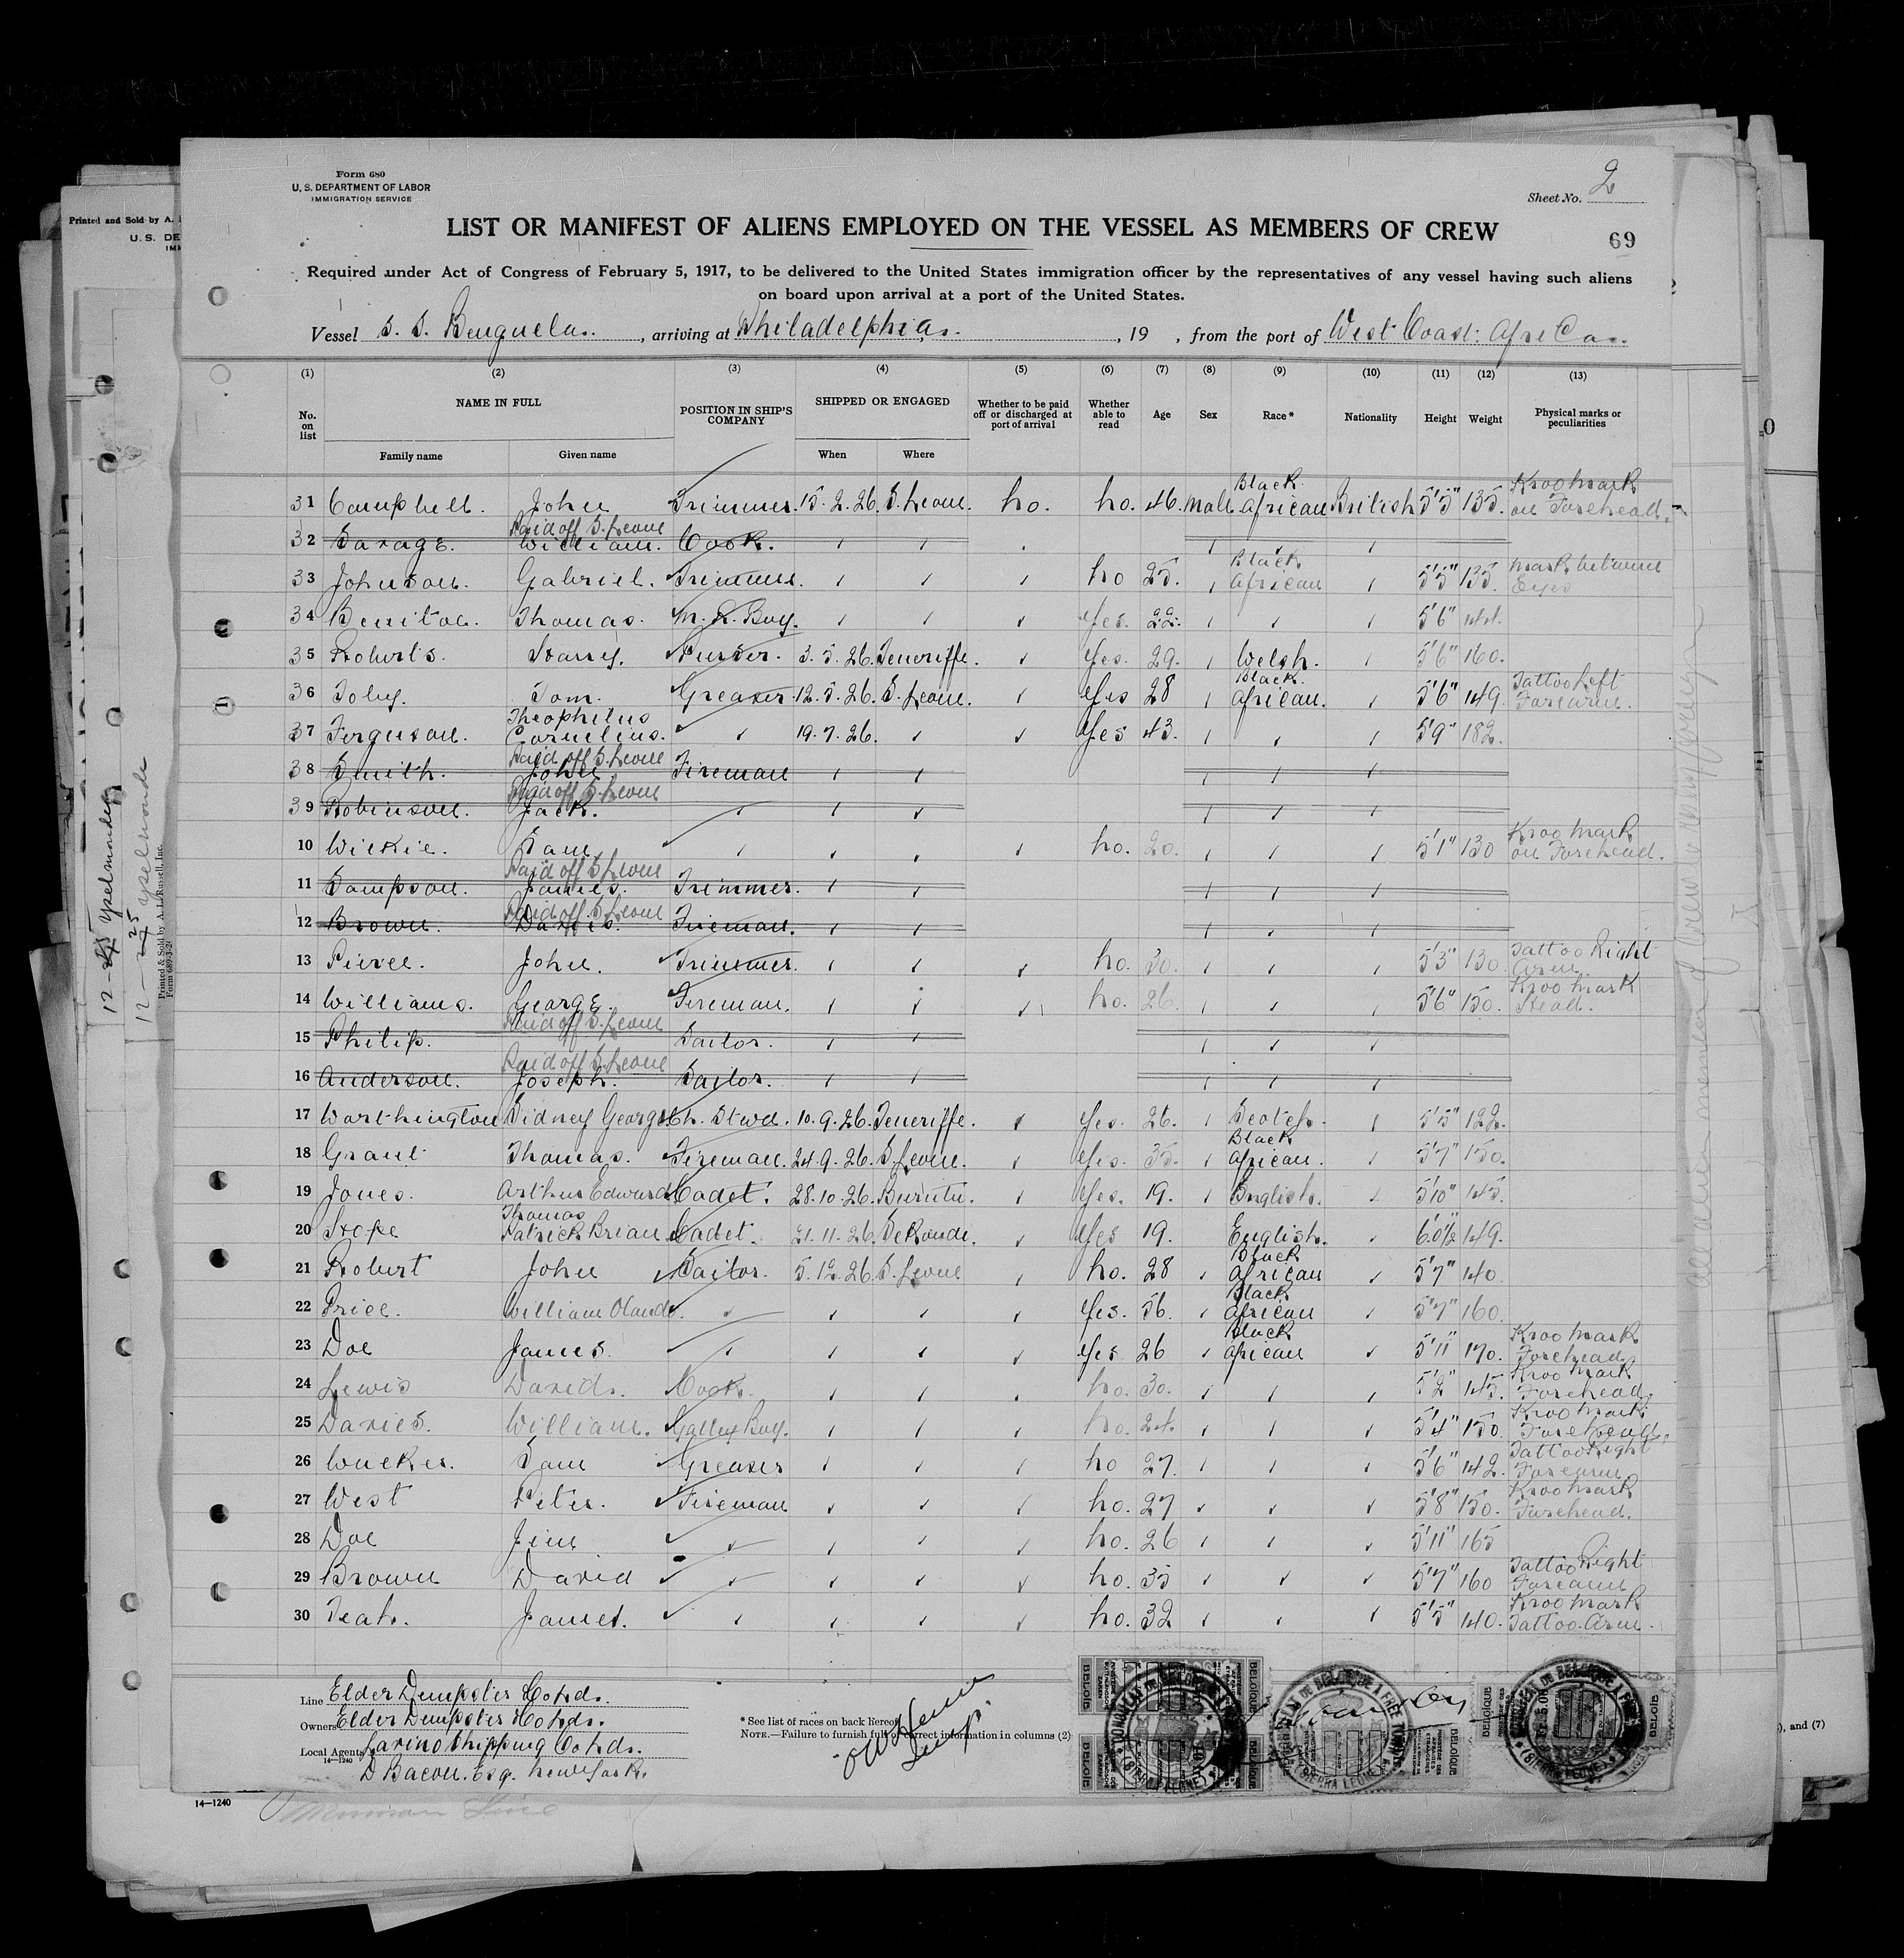 Form 680
U. S. DEPARTMENT OF LABOR
IMMIGRATION SERVICE
Sheet No. 2
LIST OR MANIFEST OF ALIENS EMPLOYED ON THE VESSEL AS MEMBERS OF CREW
69
Required under Act of Congress of February 5, 1917, to be delivered to the United States immigration officer by the representatives of any vessel having such aliens
on board upon arrival at a port of the United States.
Vessel S. S. Benguela. , arriving at Philadelphia. , 19 , from the port of West Coast: Africa.
(1) (2) (3) (4) (5) (6) (7) (8) (9) (10) (11) (12) (13)
No. on list NAME IN FULL Family name Given name POSITION IN SHIP'S COMPANY SHIPPED OR ENGAGED When Where Whether to be paid off or discharged at port of arrival Whether able to read Age Sex Race* Nationality Height Weight Physical marks or peculiarities
31 Campbell. John Trimmer. 15.2.26. S. Leone. No. No. 46. Male Black African British 5'5" 135. Kroo Mark on Forehead.
32 Savage. Paid off S. Leone William. Cook.
33 Johnson. Gabriel. Trimmer. No 25. Black African 5'5" 135. Mark between Eyes
34 Thomas. M. R. Boy. Yes. 22. 5'6" 144.
35 Roberts. Harry. Purser. 3.5.26. Teneriffe. Yes. 29. Welsh. 5'6" 160.
36 Toby. Tom. Greaser. 12.5.26. S. Leone. Yes 28 Black African. 5'6" 149. Tattoo Left Forearm.
37 Ferguson. Theophilus Cornelius. 19.7.26. Yes 43. 5'9" 182.
38 Smith. Paid off S. Leone John Fireman
39 Robinson. Paid off S. Leone Jack.
10 Wilkie. Sam No. 20. 5'1" 130 Kroo Mark on Forehead.
11 Sampson. Paid off S. Leone James. Trimmer.
12 Brown. Paid off S. Leone Fireman.
13 Pierce. John. Trimmer. No. 30. 5'3" 130 Tattoo Right Arm.
14 Williams. George. Fireman. No. 26. 5'6" 150. Kroo Mark Head.
15 Philip. Paid off S. Leone Sailor.
16 Anderson. Paid off S. Leone Joseph. Sailor.
17 Worthington Sidney George Ch. Stwd. 10.9.26. Teneriffe. Yes. 26. Scotch. 5'5" 122.
18 Grant Thomas. Fireman. 24.9.26. S. Leone. Yes. 35. Black African. 5'7" 150.
19 Jones. Arthur Edward Cadet. 28.10.26. Burutu. Yes. 19. English. 5'10" 145.
20 Hope Thomas Patrick Brian Cadet. 21.11.26. Sekondi. Yes 19. English. 6'0½" 149.
21 Robert John Sailor. 5.12.26. S. Leone No. 28 Black African 5'7" 140.
22 Price. William Yes. 56. Black African 5'7" 160.
23 Doe James. Yes 26 Black African 5'11" 170. Kroo Mark Forehead.
24 Lewis David. Cook. No. 30. 5'2" 145. Kroo Mark Forehead.
25 Davies. William. Galley Boy. No. 24. 5'4" 150. Kroo Mark Forehead.
26 Sam Greaser No 27. 5'6" 142. Tattoo Right Forearm.
27 West Peter. Fireman No. 27 5'8" 150. Kroo Mark Forehead.
28 Doe Jim No. 26 5'11" 165
29 Brown David No. 35 5'7" 160 Tattoo Right Forearm
30 James. No. 32 5'5" 140. Kroo Mark Tattoo Arm.
Line Elder Dempster Co Ltd.
Owners Elder Dempster Co Ltd.
Local Agents Shipping Co Ltd.
14—1240
D Bacon. Esq. New York.
* See list of races on back hereof.
NOTE.—Failure to furnish full or correct information in columns (2)
, and (7)
14—1240
BELGIQUE
BELGIE
CONSULAT DE BELGIQUE A FREETOWN
(SIERRA LEONE)
Printed and Sold by A.
U. S. DE
Printed & Sold by A. L. Russell, Inc.
12 - Yselmonde
12 - 25 Yselmonde